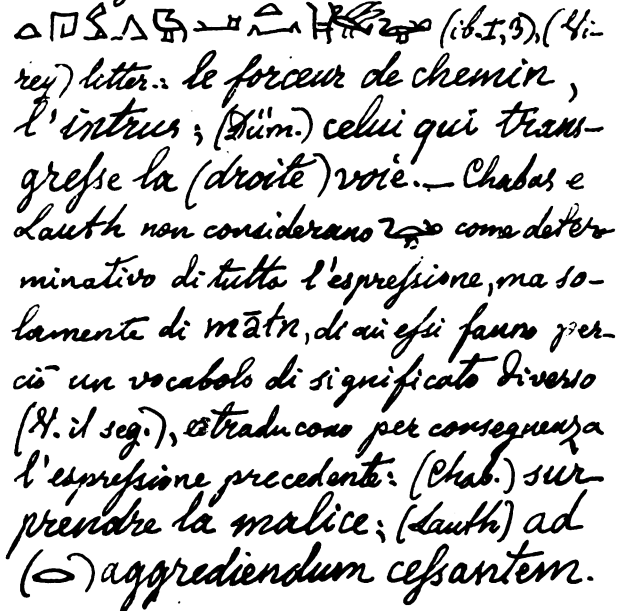 (ib. I, 3), (Vi-
rey) litter.: le forceur de chemin,
l'intrus; (Düm.) celui qui trans-
gresse la (droite) voie. — Chabas e
Lauth non considerano come deter-
minativo di tutta l'espressione, ma so-
lamente di mātn, di cui essi fanno per-
ciò un vocabolo di significato diverso
(V. il seg.), e traducono per conseguenza
l'espressione precedente: (Chab.) sur-
prendre la malice; (Lauth) ad
aggrediendum cessantem.